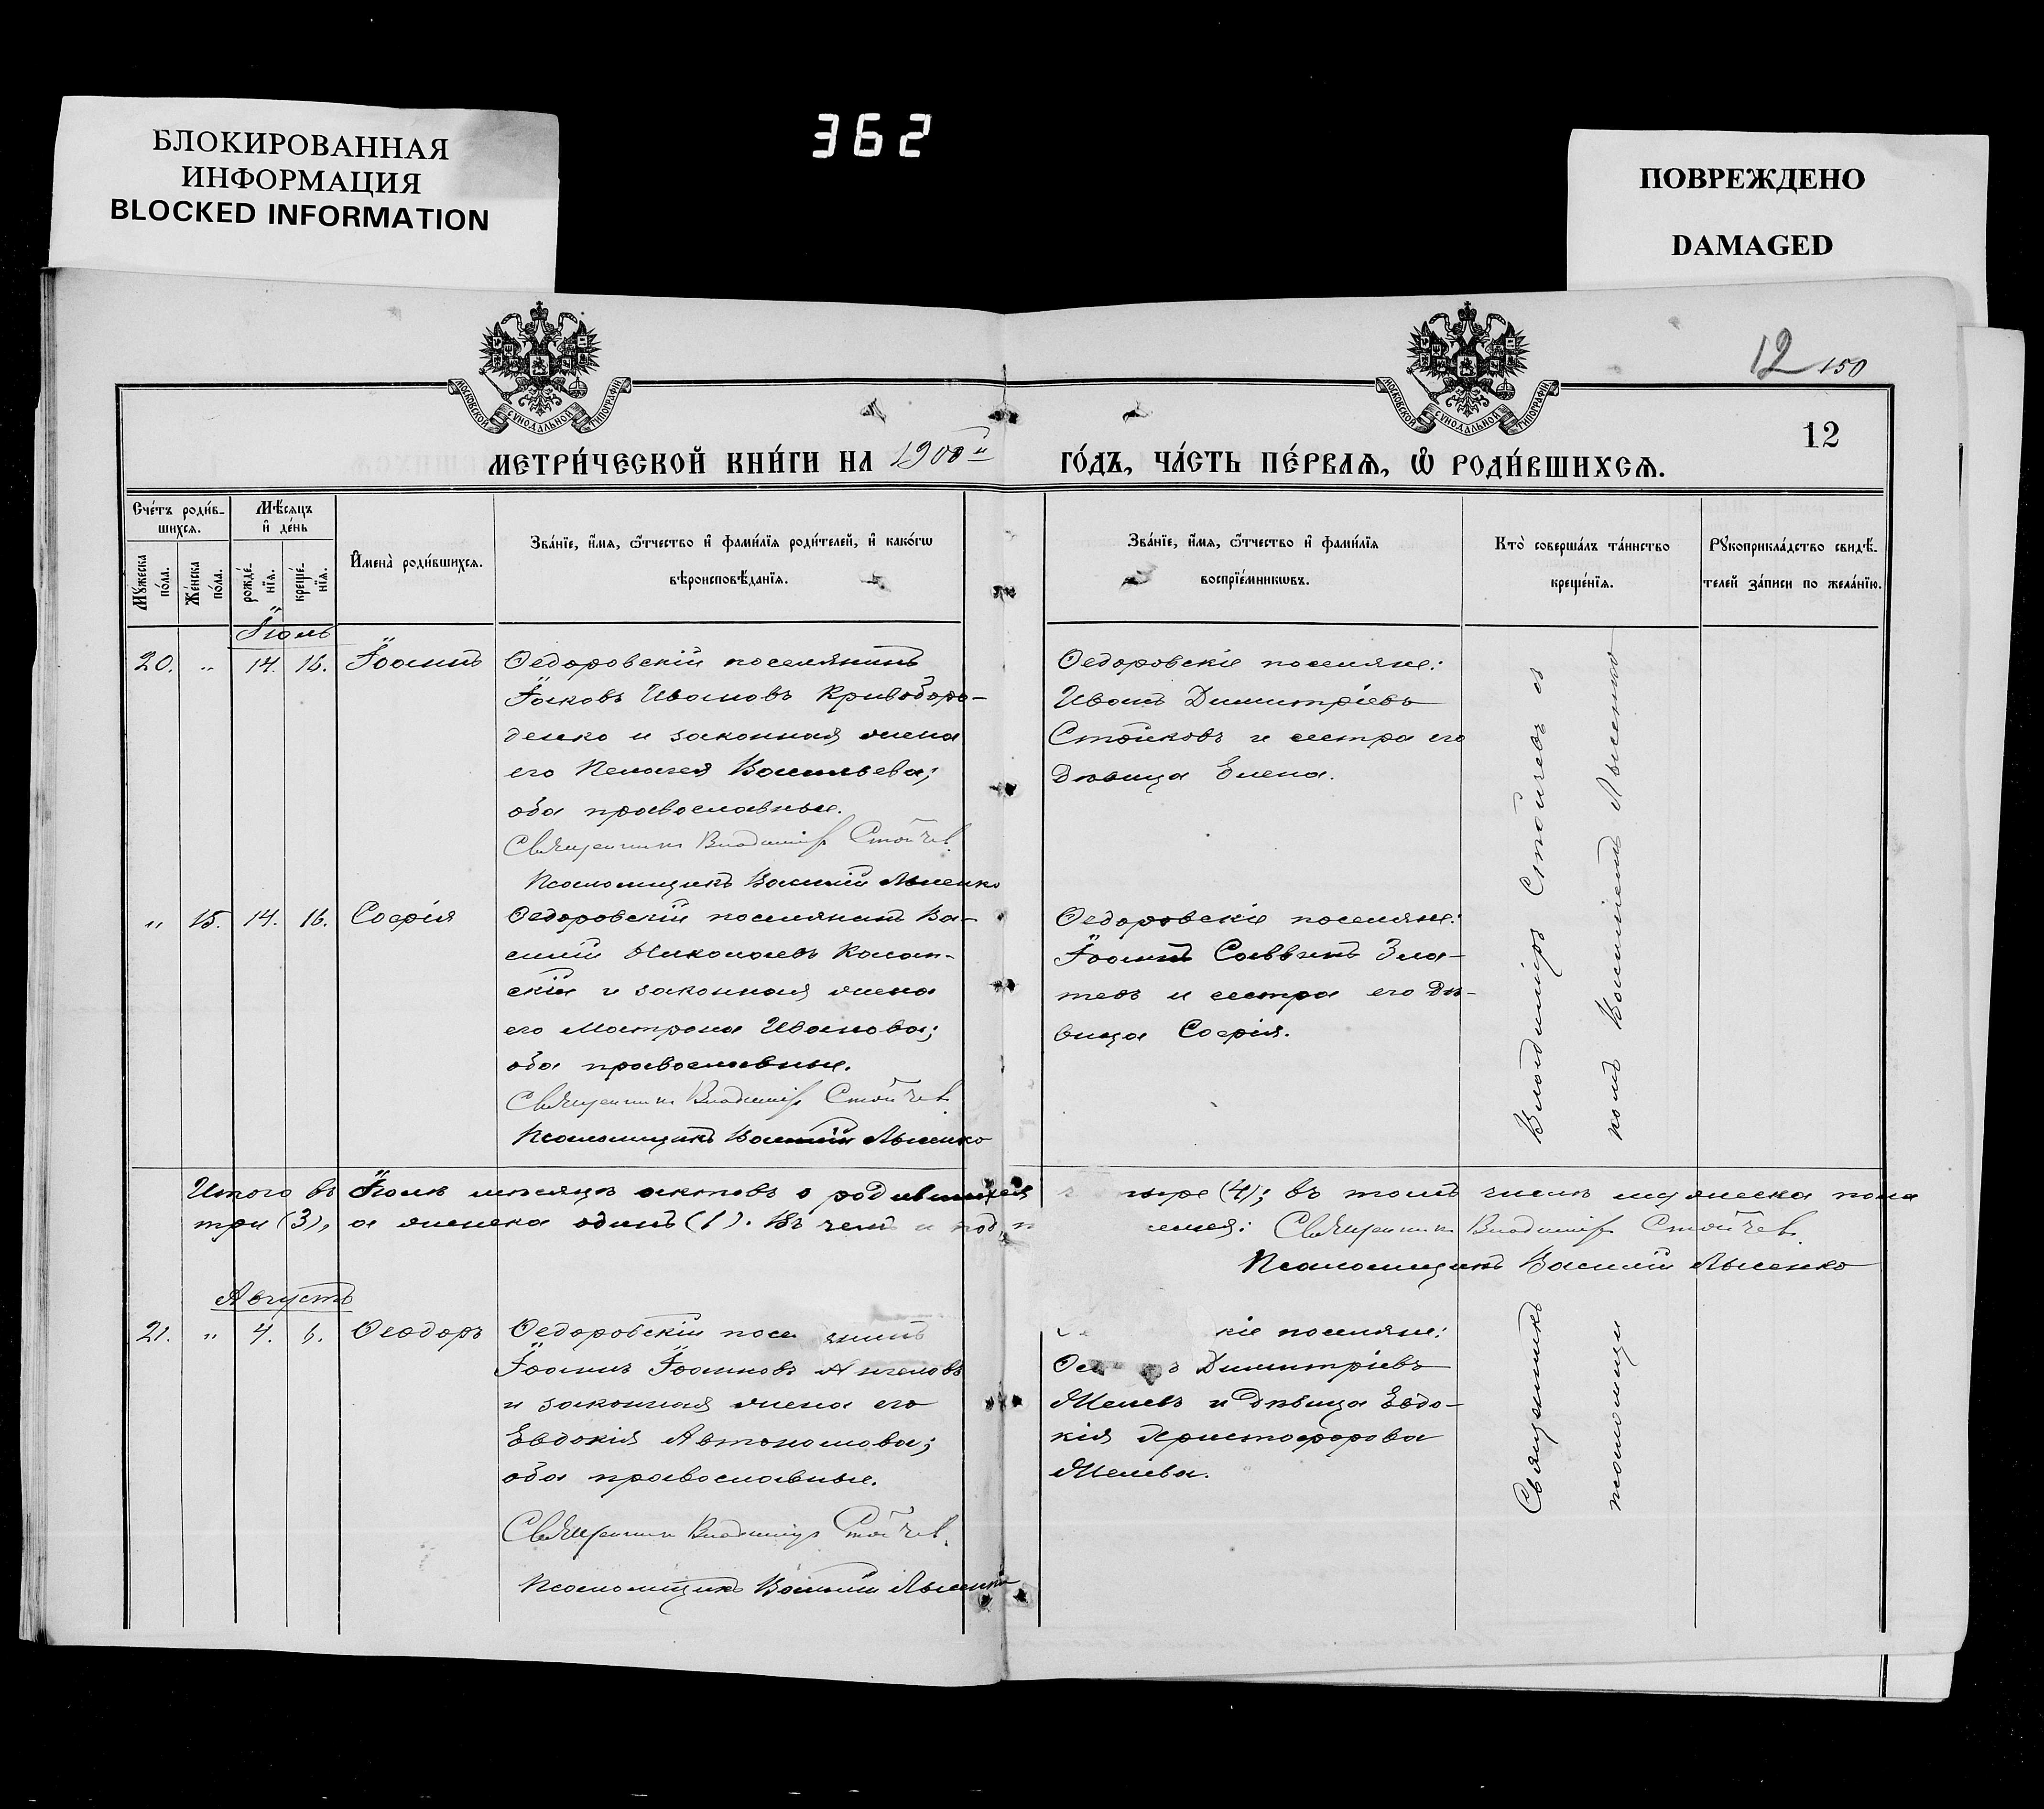 БЛОКИРОВАННАЯ
ИНФОРМАЦИЯ
BLOCKED INFORMATION
362
ПОВРЕЖДЕНО
DAMAGED
МОСКОВСКОЙ СУНОДАЛЬНОЙ ТИПОГРАФІИ
МОСКОВСКОЙ СУНОДАЛЬНОЙ ТИПОГРАФІИ
12 150
12
МЕТРИ́ЧЕСКОЙ КНИ́ГИ НА 1900й ГО́ДЪ, ЧА́СТЬ ПЕ́РВАЯ, Ѡ РОДИ́ВШИХСѦ.
Сче́тъ роди́в-
шихсѧ.
Мꙋжеска
по́ла.
Же́нска
по́ла.
Мѣ́сѧцъ
и҆ де́нь
рожде́-
нїѧ.
креще́-
нїѧ.
И҆мена̀ роди́вшихсѧ.
Зва́нїе, и҆́мѧ, ѻ҆́тчество и҆ фами́лїѧ роди́телей, и҆ како́гѡ
вѣроисповѣ́данїѧ.
Зва́нїе, и҆́мѧ, ѻ҆́тчество и҆ фами́лїѧ
воспрїе́мникѡвъ.
Кто̀ соверша́лъ та́инство
креще́нїѧ.
Рꙋкоприкла́дство свидѣ́-
телей за́писи по жела́нїю.
Іюль
20. „ 14. 16. Іоаннъ
Ѳедоровскій поселянинъ
Іаковъ Ивановъ Кривоборо-
денко и законная жена
его Пелагея Васильева;
оба православные.
Священникъ Владиміръ Стойчев
Псаломщикъ Василій Лысенко
Ѳедоровскіе поселяне:
Иванъ Димитріевъ
Стойковъ и сестра его
дѣвица Елена.
„ 15. 14. 16. Софія
Ѳедоровскій поселянинъ Ва-
силій Николаевъ Казан-
скій и законная жена
его Матрона Иванова;
оба православные.
Священникъ Владиміръ Стойчев
Псаломщикъ Василій Лысенко
Ѳедоровскіе поселяне:
Іоаннъ Саввинъ Зла-
тевъ и сестра его дѣ-
вица Софія.
Итого въ Іюлѣ мѣсяцѣ актовъ о родившихся ыре (4); въ томъ числѣ мужеска пола
три (3), а женска одинъ (1). Въ чемъ и под емся: Священникъ Владиміръ Стойчев
Псаломщикъ Василій Лысенко
Августъ
21. „ 4. 6. Ѳеодоръ
Ѳедоровскій посе нинъ
Іоаннъ Іоанновъ Ангеловъ
и законная жена его
Евдокія Автономова;
оба православные.
Священникъ Владиміръ Стойчев
Псаломщикъ Василій Лысенко
кіе поселяне:
Димитріевъ
Желевъ и дѣвица Евдо-
кія Христофорова
Желева.
Священникъ Владиміръ Стойчевъ съ
псаломщикомъ Василіемъ Лысенко